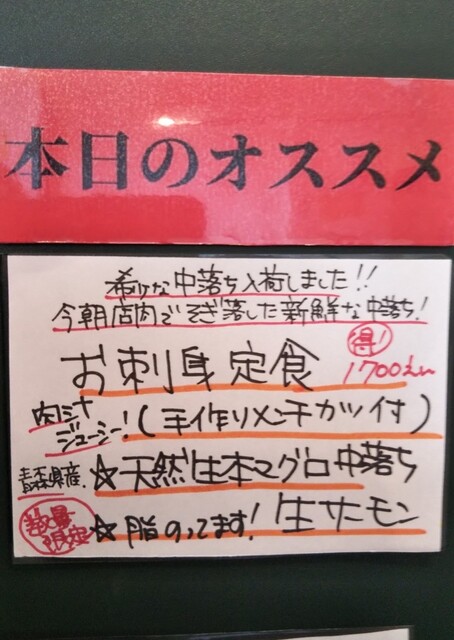 本日のオススメ
希少な中落ち入荷しました!!
今朝店内でそぎ落した新鮮な中落ち!
お刺身定食
得!
1700えん
肉汁
ジューシー!
(手作りメンチカツ付)
青森県産
☆天然生本マグロ中落ち
数量
限定
☆脂のってます!生サーモン